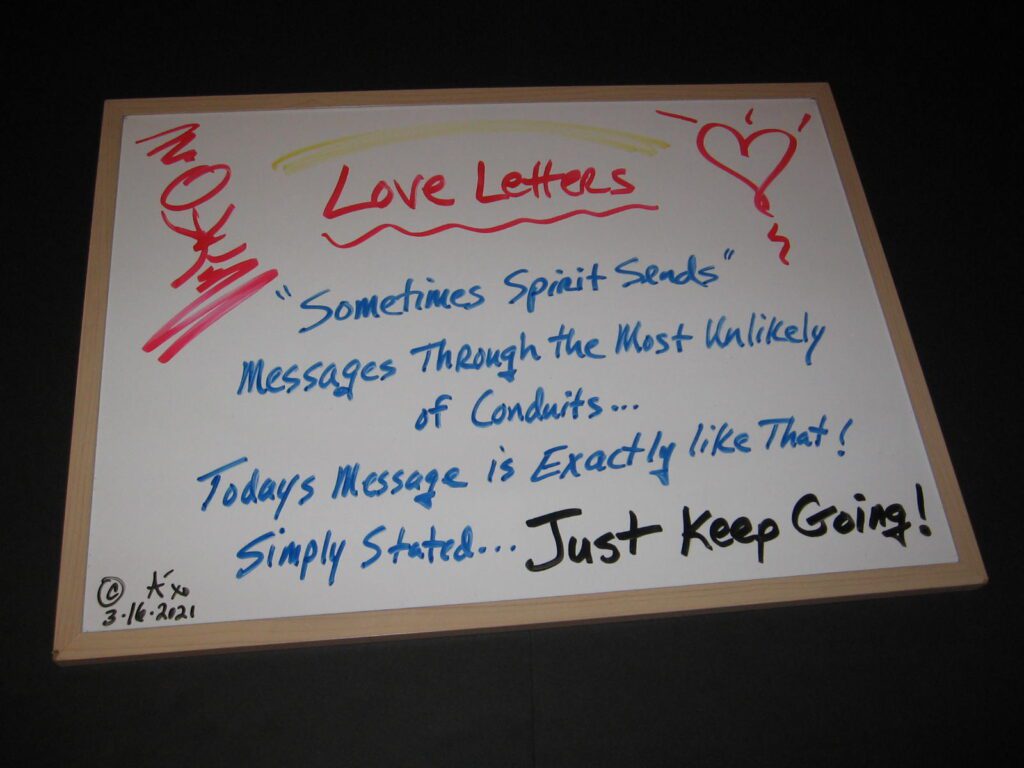 Love Letters
"Sometimes Spirit Sends"
Messages Through the Most Unlikely
of Conduits...
Todays Message is Exactly like That!
Simply Stated... Just Keep Going!
© A' xo
3.16.2021